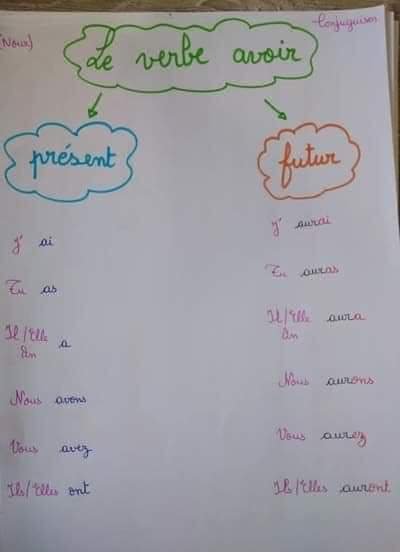 Conjugaison
(Nour)
Le verbe avoir
présent
futur
j' ai
Tu as
Il/Elle
On a
Nous avons
Vous avez
Ils/Elles ont
j' aurai
Tu auras
Il/Elle aura
On
Nous aurons
Vous aurez
Ils/Elles auront